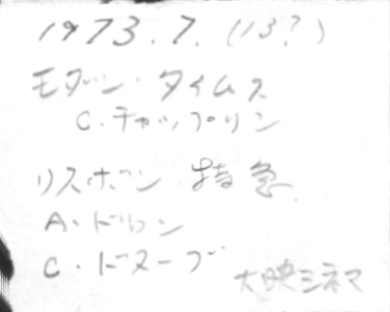 1973.7.(13?)
モダン・タイムス
C.チャップリン
リスボン特急
A.ドロン
C.ドヌーブ
大映シネマ